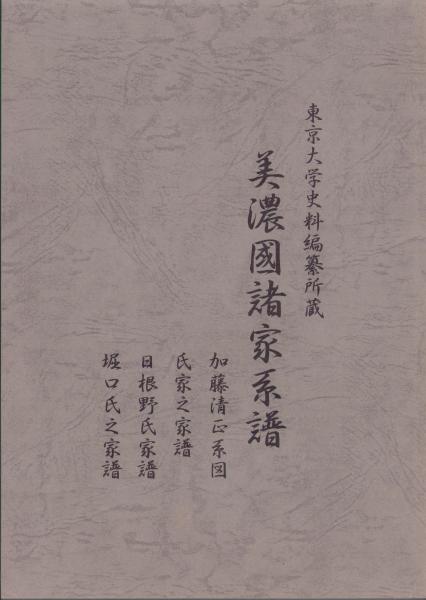 東京大学史料編纂所蔵
美濃國諸家系譜
加藤清正系図
氏家之家譜
日根野氏家譜
堀口氏之家譜